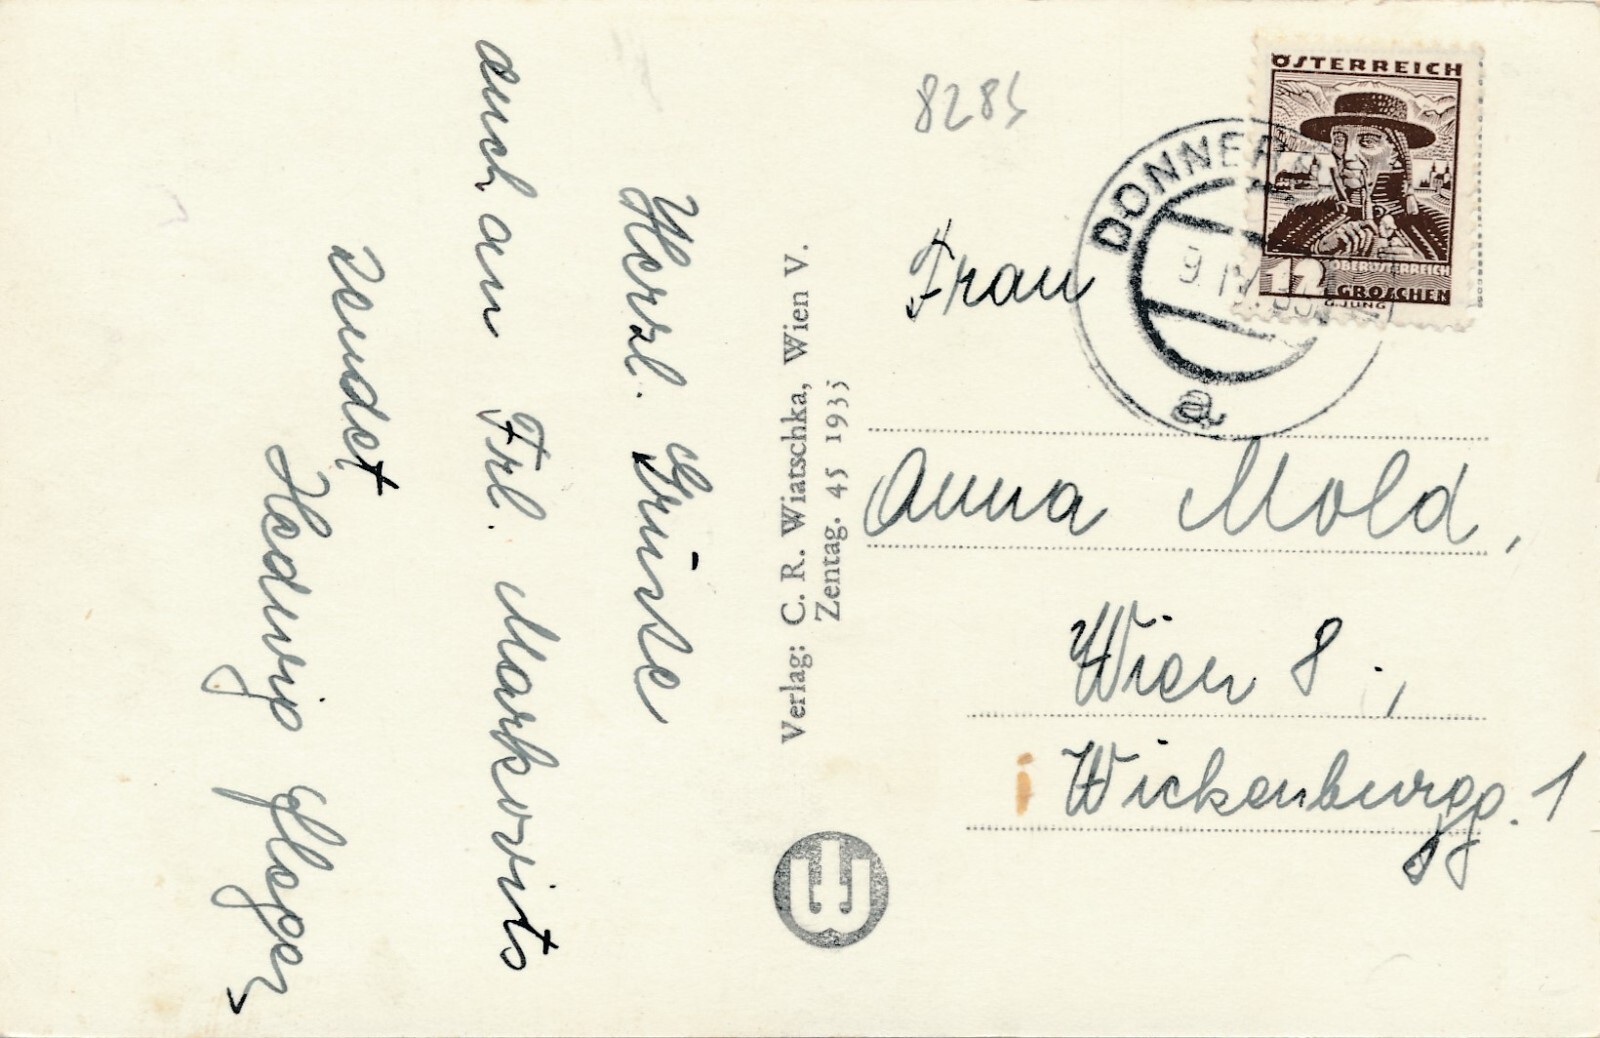 Herzl. Grüsse
auch an Frl. Markovits
sendet
Hedwig
Verlag: C. R. Wiatschka, Wien V.
Zentag. 45 1935
ÖSTERREICH
OBERÖSTERREICH
12 GROSCHEN
G. JUNG
DONNER
9. IV.
a
Frau
Anna Mold,
Wien 8.,
Wickenburgg. 1